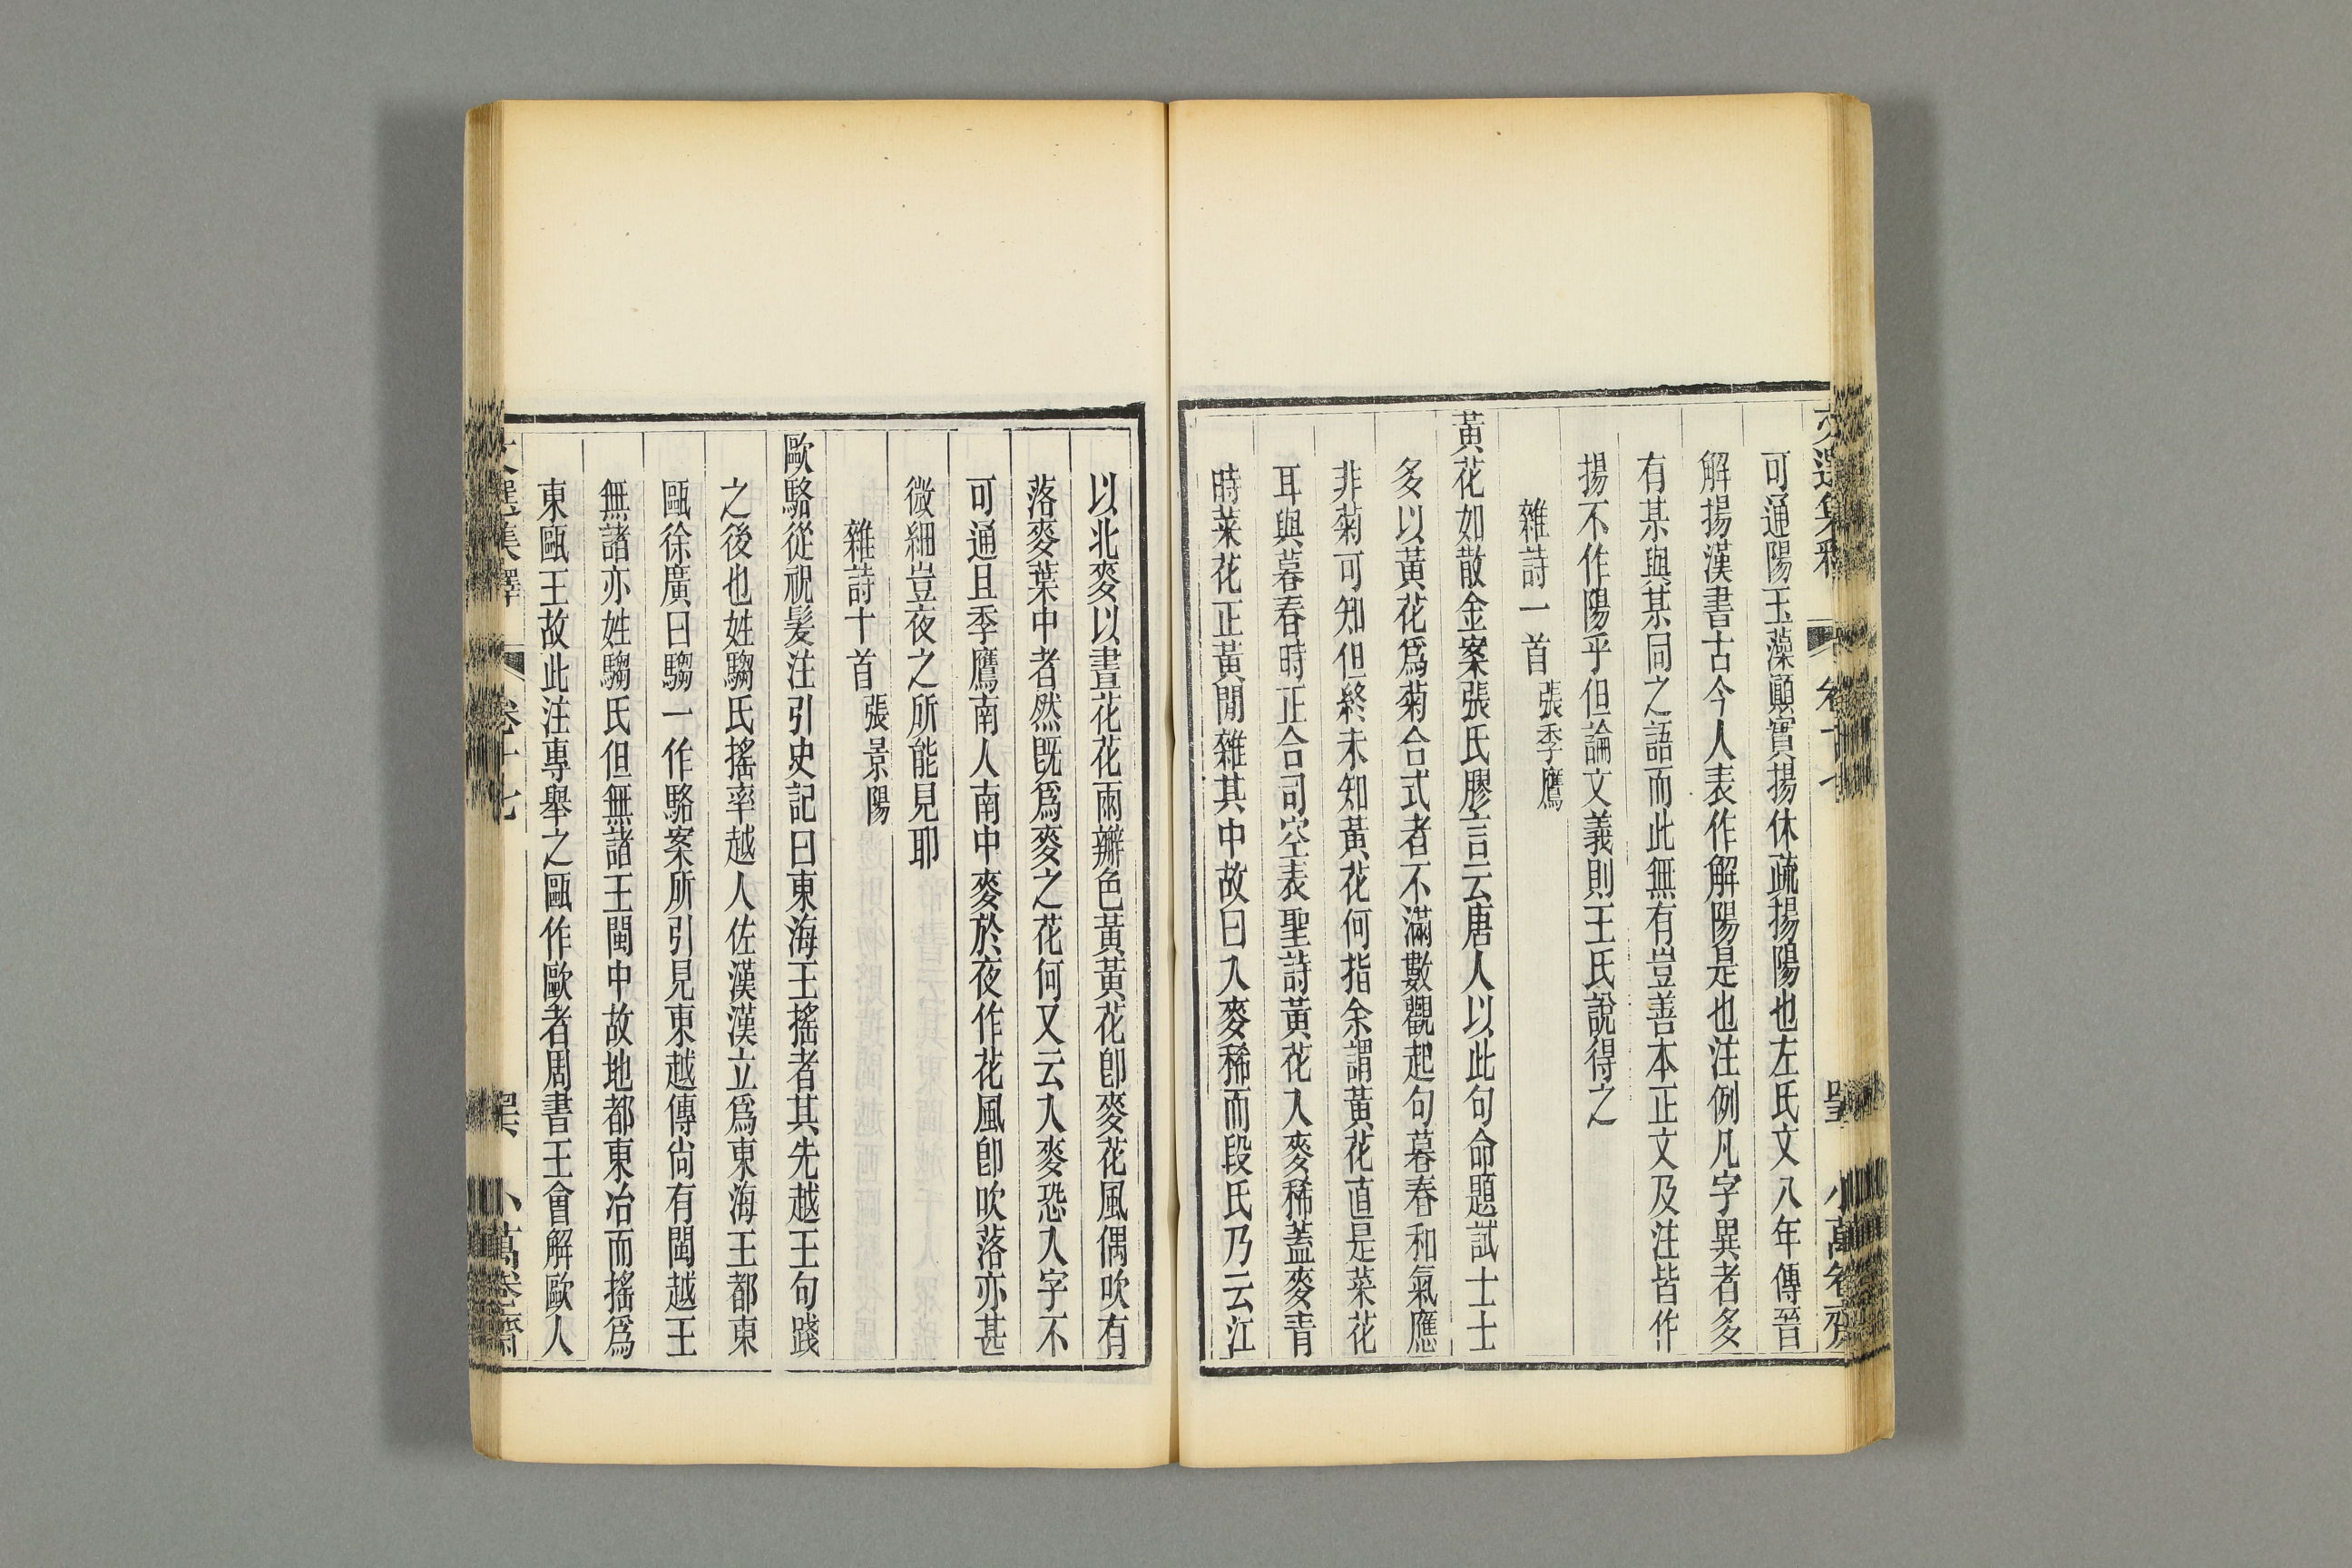 可通陽玉藻顚實揚休疏揚陽也左氏文八年傳晉
解揚漢書古今人表作解陽是也注例凡字異者多
有某與某同之語而此無有豈善本正文及注皆作
揚不作陽乎但論文義則王氏說得之
雜詩一首 張季鷹
黃花如散金案張氏膠言云唐人以此句命題試士士
多以黃花爲菊合式者不滿數觀起句暮春和氣應
非菊可知但終未知黃花何指余謂黃花直是菜花
耳與暮春時正合司空表聖詩黃花入麥稀蓋麥青
時菜花正黃閒雜其中故曰入麥稀而段氏乃云江
以北麥以晝花花兩瓣色黃黃花卽麥花風偶吹有
落麥葉中者然旣爲麥之花何又云入麥恐入字不
可通且季鷹南人南中麥於夜作花風卽吹落亦甚
微細豈夜之所能見耶
雜詩十首 張景陽
歐駱從祝髮注引史記曰東海王搖者其先越王句踐
之後也姓騶氏搖率越人佐漢漢立爲東海王都東
甌徐廣曰騶一作駱案所引見東越傳尙有閩越王
無諸亦姓騶氏但無諸王閩中故地都東冶而搖爲
東甌王故此注專舉之甌作歐者周書王會解歐人
文選集釋 卷十七 小萬卷齋